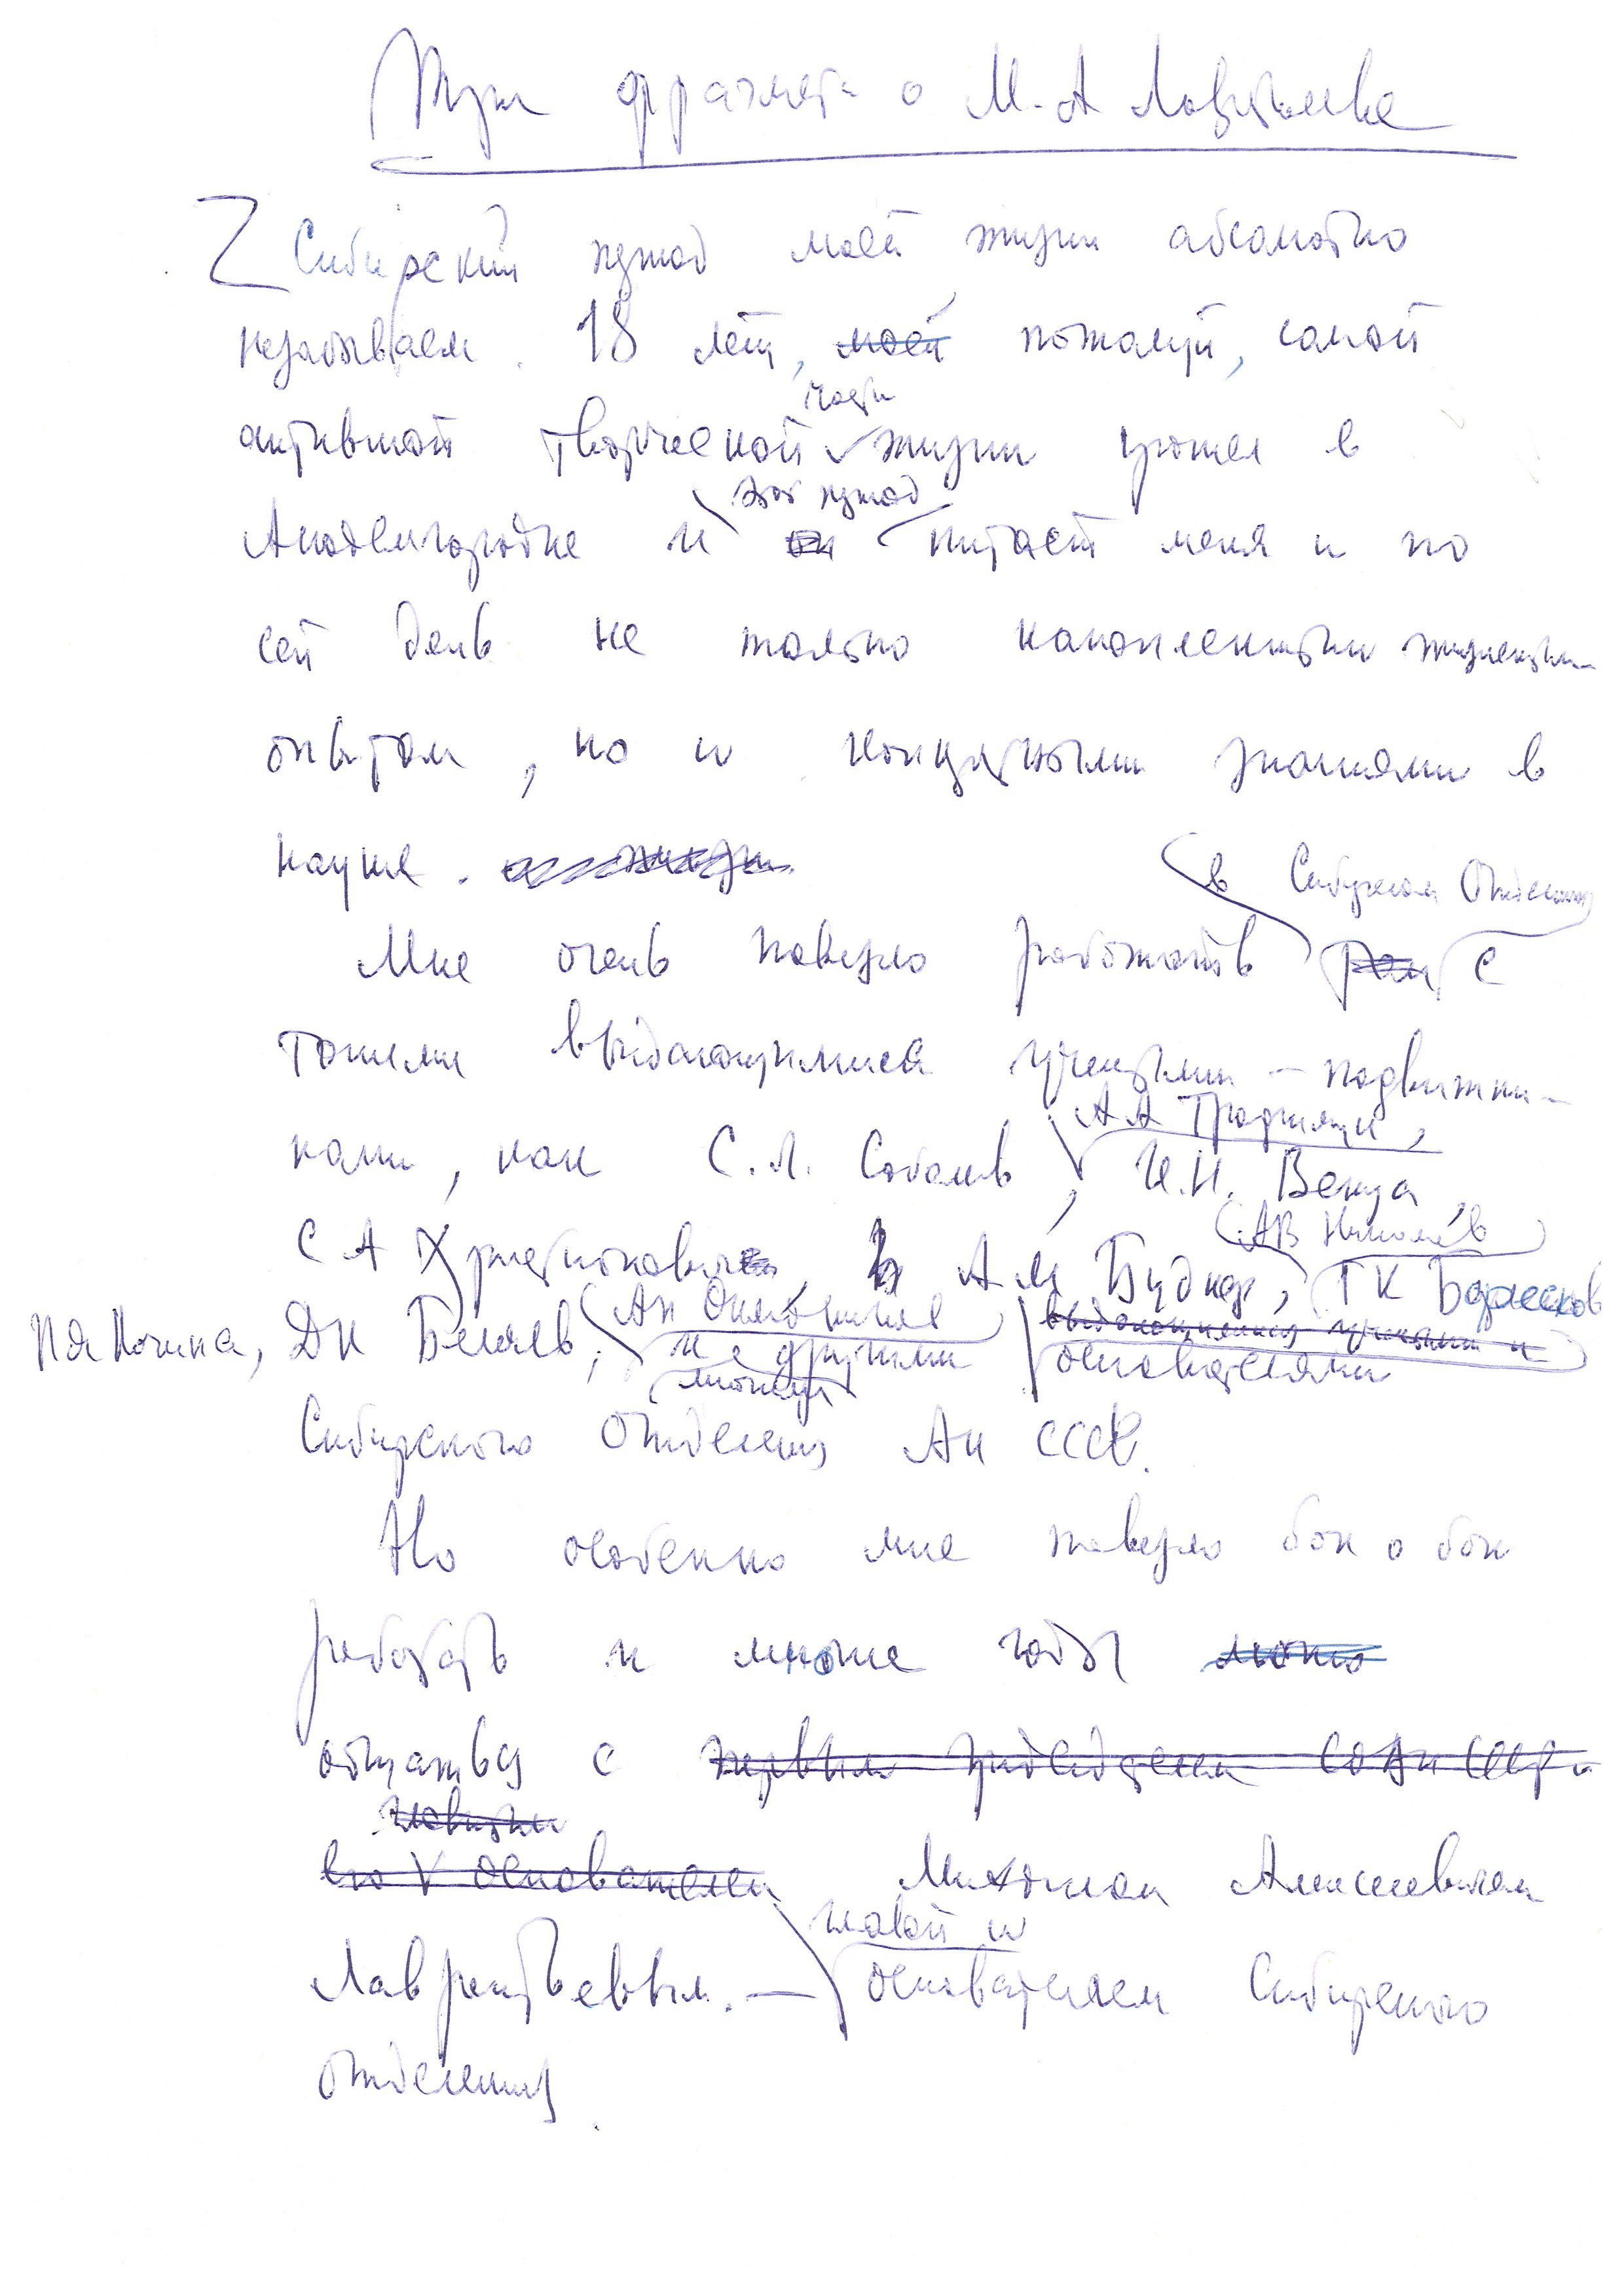 Три фрагмента о М.А Лаврентьеве
Сибирский период моей жизни абсолютно
незабываем. 18 лет, моей пожалуй, самой
части
активной творческой жизни прошел в
этот период
Академгородке и он питает меня и по
сей день не только накопленным жизненным
опытом, но и конкретными знаниями в
науке.
в Сибирском Отделении
Мне очень повезло работать с
такими выдающимися учеными – подвижни-
А А Трофимук,
ками, как С.Л. Соболев, И.Н. Векуа,
АВ Николаев
С А Христианович, А М Будкер, ГК Боресков
АП Окладников выдающимися учеными и
ПЯ Кочина, ДК Беляев, и с другими основателями
многими
Сибирского Отделения АН СССР.
Но особенно мне повезло бок о бок
работать и многие годы
общаться с первым президентом СО АН СССР и
главным
его основателем Михаилом Алексеевичем
главой и
Лаврентьевым. — основателем Сибирского
Отделения